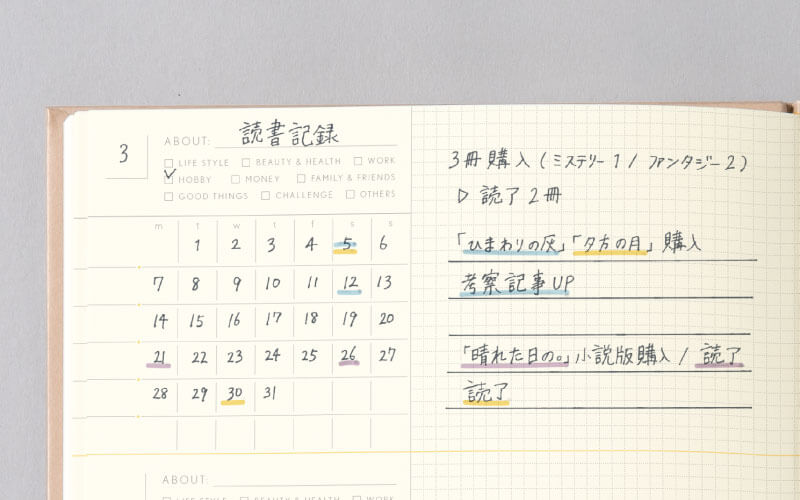 3
ABOUT: 読書記録
LIFE STYLE BEAUTY & HEALTH WORK
HOBBY MONEY FAMILY & FRIENDS
GOOD THINGS CHALLENGE OTHERS
m t w t f s s
1 2 3 4 5 6
7 8 9 10 11 12 13
14 15 16 17 18 19 20
21 22 23 24 25 26 27
28 29 30 31
ABOUT:
LIFE STYLE BEAUTY & HEALTH WORK
3冊購入(ミステリー1/ファンタジー2)
▷読了2冊
「ひまわりの灰」「夕方の月」購入
考察記事UP
「晴れた日の。」小説版購入/読了
読了